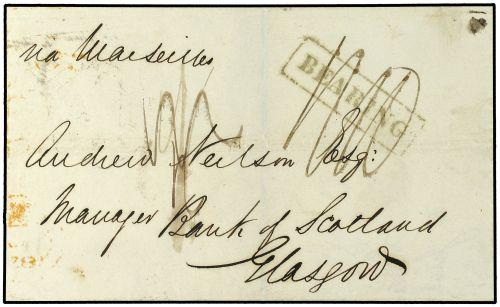 via Marseilles
BEARING
Andrew Neilson Esq:
Manager Bank of Scotland
Glasgow